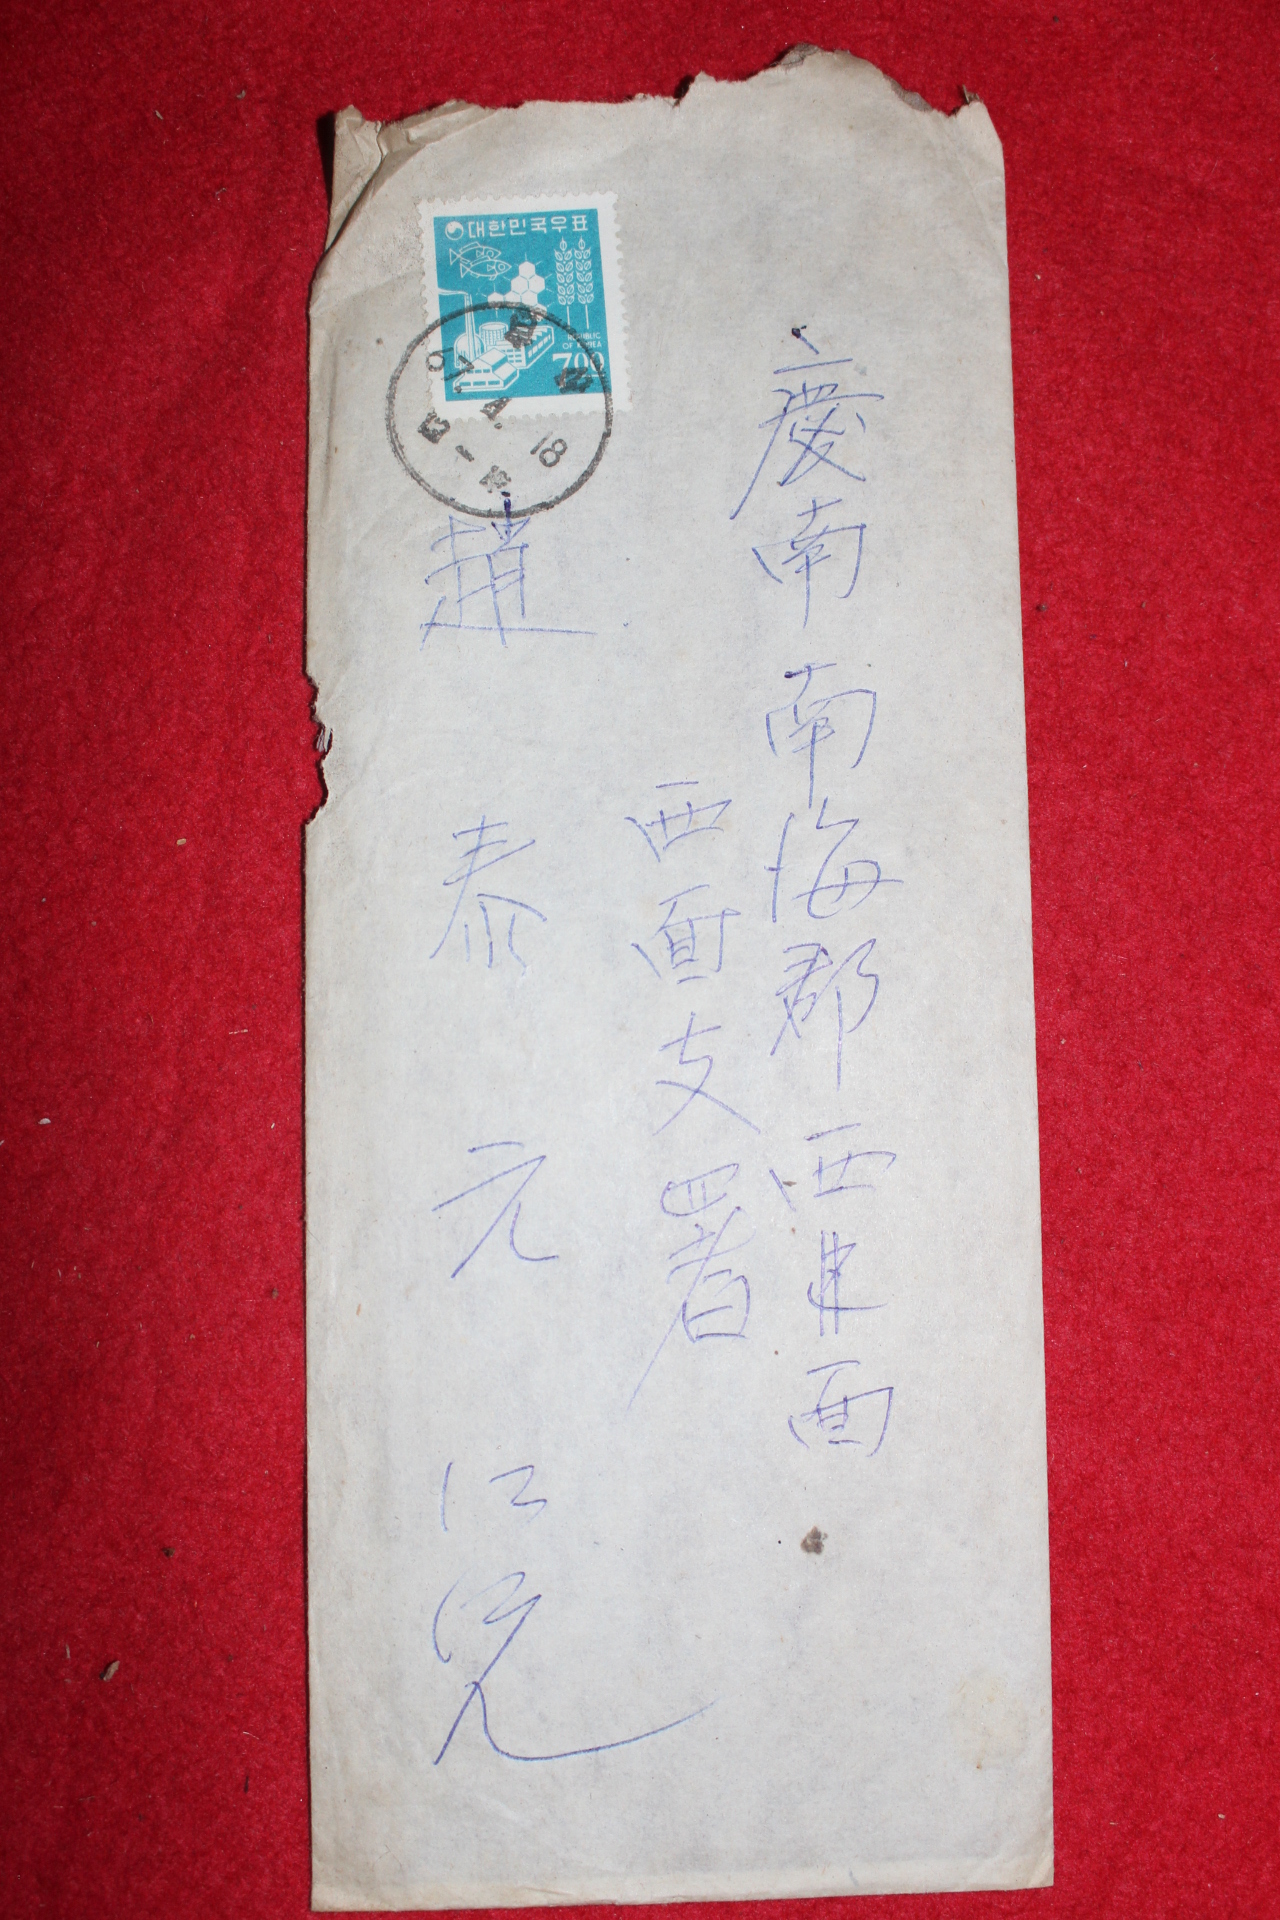 대한민국우표
REPUBLIC
OF KOREA
700
67. 4. 18
慶南 南海郡 西面
西面支署
趙泰元 仁兄